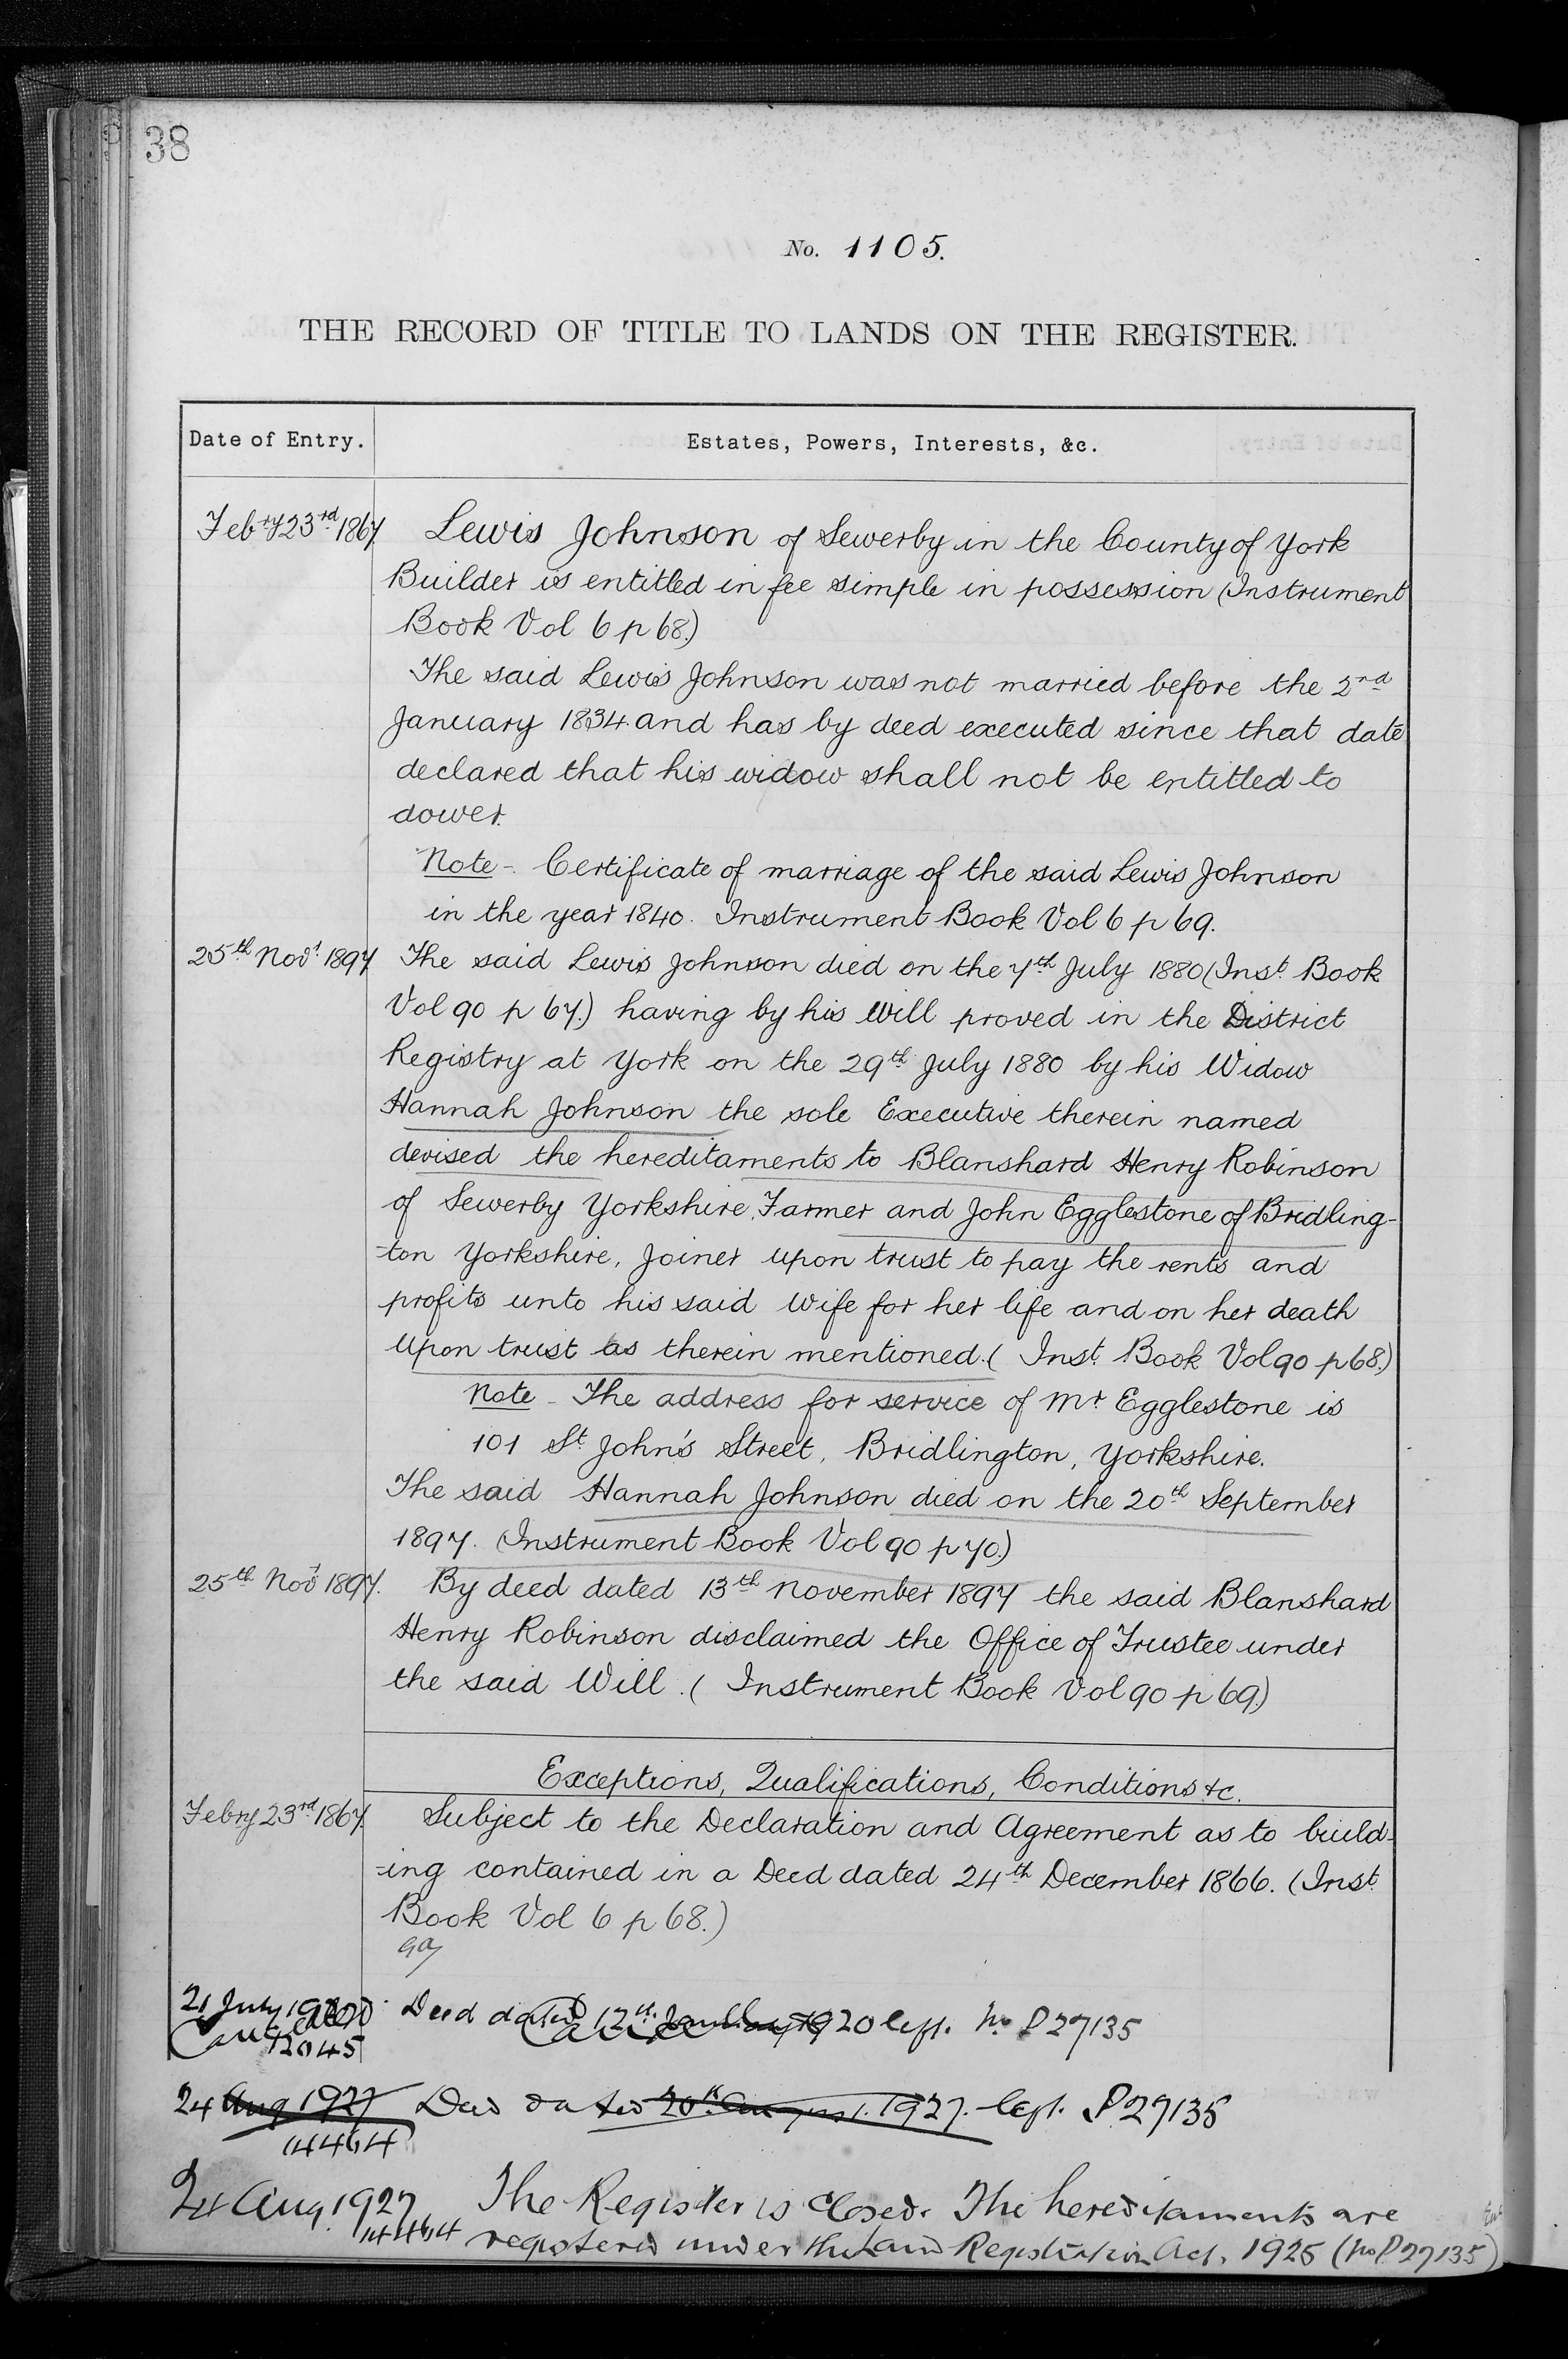 38
No. 1105.
THE RECORD OF TITLE TO LANDS ON THE REGISTER.
Date of Entry.
Estates, Powers, Interests, &c.
Febry 23rd 1867 Lewis Johnson of Sewerby in the County of York
Builder is entitled in fee simple in possession (Instrument
Book Vol 6 p 68.)
The said Lewis Johnson was not married before the 2nd
January 1834 and has by deed executed since that date
declared that his widow shall not be entitled to
dower.
Note - Certificate of marriage of the said Lewis Johnson
in the year 1840. Instrument Book Vol 6 p 69.
25th Novr 1897 The said Lewis Johnson died on the 7th July 1880 (Inst. Book
Vol 90 p 67.) having by his Will proved in the District
Registry at York on the 29th July 1880 by his Widow
Hannah Johnson the sole Executive therein named
devised the hereditaments to Blanshard Henry Robinson
of Sewerby Yorkshire, Farmer and John Egglestone of Bridling-
-ton Yorkshire, Joiner upon trust to pay the rents and
profits unto his said Wife for her life and on her death
Upon trust as therein mentioned. (Inst. Book Vol 90 p 68.)
Note - The address for service of Mr Egglestone is
101 St. John's Street, Bridlington, Yorkshire.
The said Hannah Johnson died on the 20th September
1897. (Instrument Book Vol 90 p 70.)
25th Novr 1897. By deed dated 13th November 1897 the said Blanshard
Henry Robinson disclaimed the Office of Trustee under
the said Will. (Instrument Book Vol 90 p 69)
Exceptions, Qualifications, Conditions &c.
Febry 23rd 1867. Subject to the Declaration and Agreement as to build-
-ing contained in a Deed dated 24th December 1866. (Inst.
Book Vol 6 p 68.)
21 July 1920 Deed dated 12th 1920 No P27135
12045
24 Aug 1927 Deed dated 20th August 1927. P27135
14464
24 Aug. 1927 The Register is closed. The hereditaments are
14464 registered under the Land Registration Act, 1925 (No P.27135)